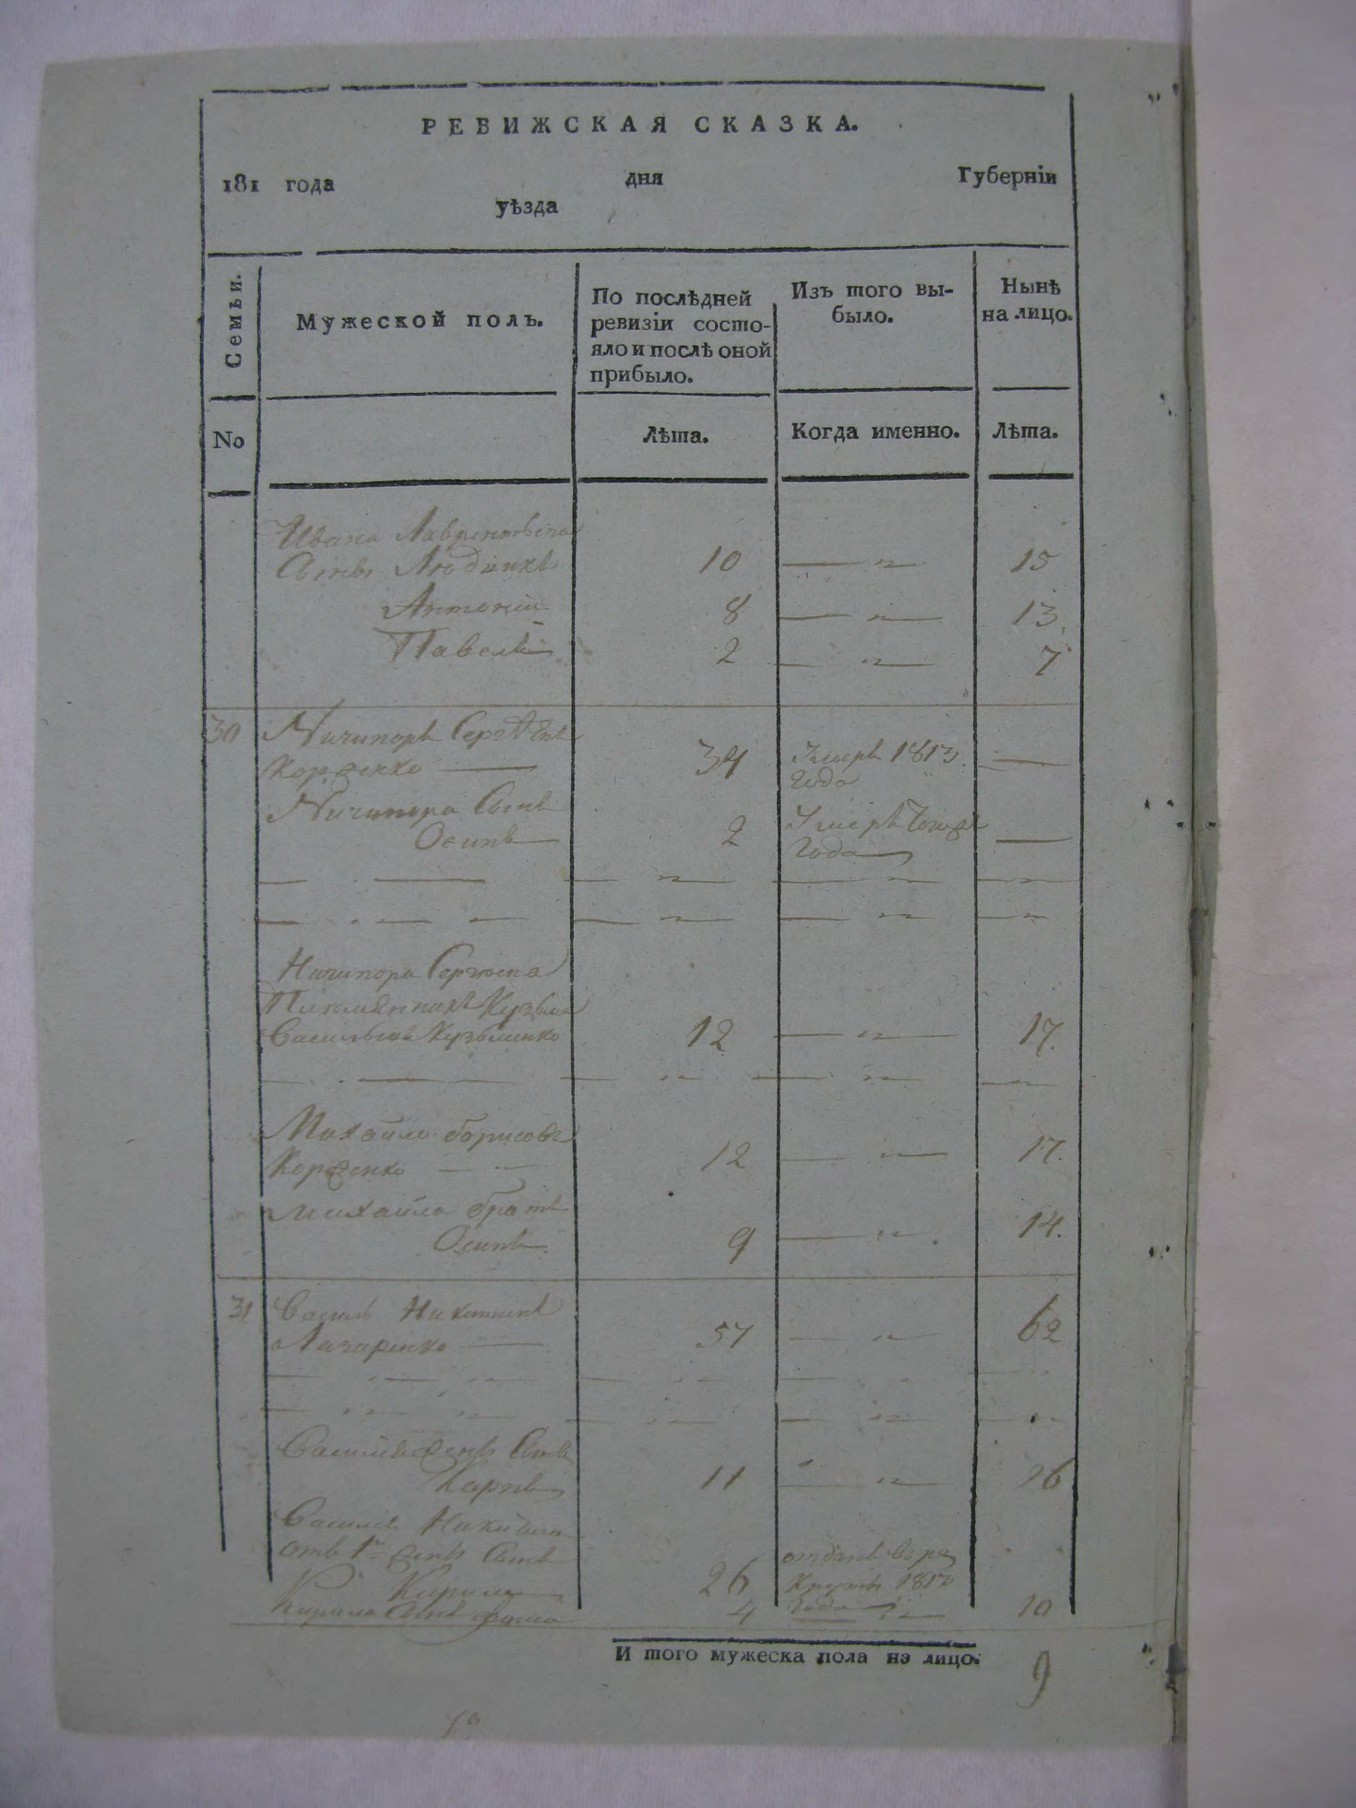 РЕВИЖСКАЯ СКАЗКА.
181 года дня Губерніи
уѣзда
Семьи.
Мужеской полъ.
По послѣдней ревизіи состо-
яло и послѣ оной прибыло.
Изъ того вы-
было.
Нынѣ
на лицо.
No
Лѣта.
Когда именно.
Лѣта.
Ивана Лаврентьева
Сынъ 10 15
Антоній 8 13
Павелъ 2 7
30 Ничипоръ Сергѣевъ
Корженко 34 Умеръ 1813 года
Ничипора Сынъ
Осипъ 2 Умеръ года
Ничипора Сергѣева
Племянникъ Кузьма
Васильевъ Кузьменко 12 17.
Михайло Борисовъ
Корженко 12 17.
Михайла братъ
Осипъ 9 14.
31 Василь Никитинъ
57 62
Карпъ 11 16
Василя Никитина
отъ 1й жены Сынъ
Кирила 26 отданъ въ рекруты года
Кирила Сынъ 4 10
И того мужеска пола на лицо. 9